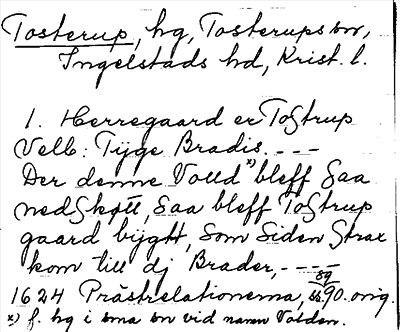 Tosterup, hg, Tosterups sn,
Ingelstads hd, Krist. l.
1. Herregaard er Tostrup
Velb: Tijge Bradis. ---
Der denne Volld x) bleff Saa
nedskøtt, Saa bleff Tostrup
gaard bijgtt, Som Siden Strax
kom till dj Brader, ----
1624 Prästrelationerna, 90. orig.
x) f. hg i sma sn vid namn Valden.